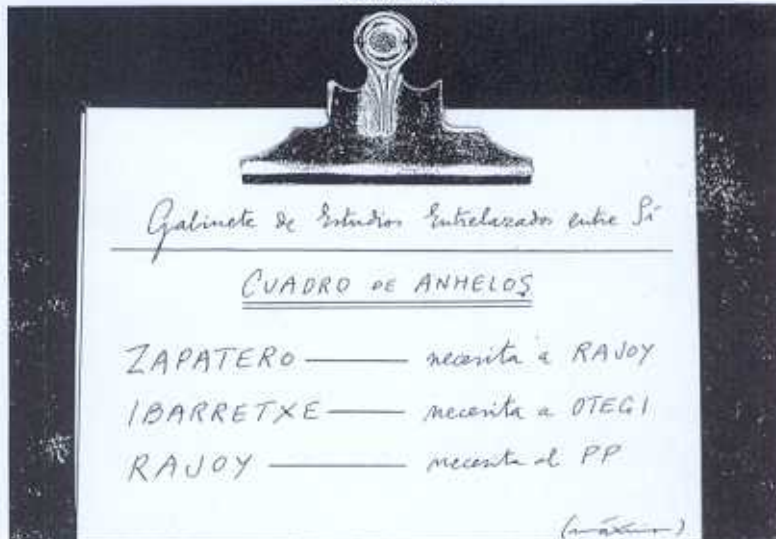 Gabinete de Estudios Entrelazados entre Sí
CUADRO DE ANHELOS
ZAPATERO necesita a RAJOY
IBARRETXE necesita a OTEGI
RAJOY necesita al PP
(máximo)